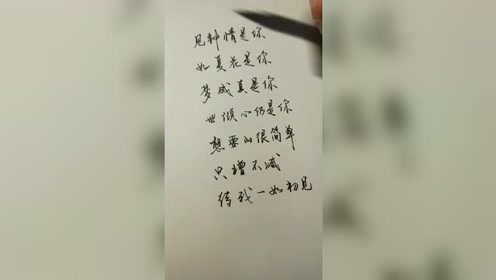 见钟情是你
如夏花是你
梦成真是你
世倾心仍是你
想要的很简单
只增不减
待我一如初见